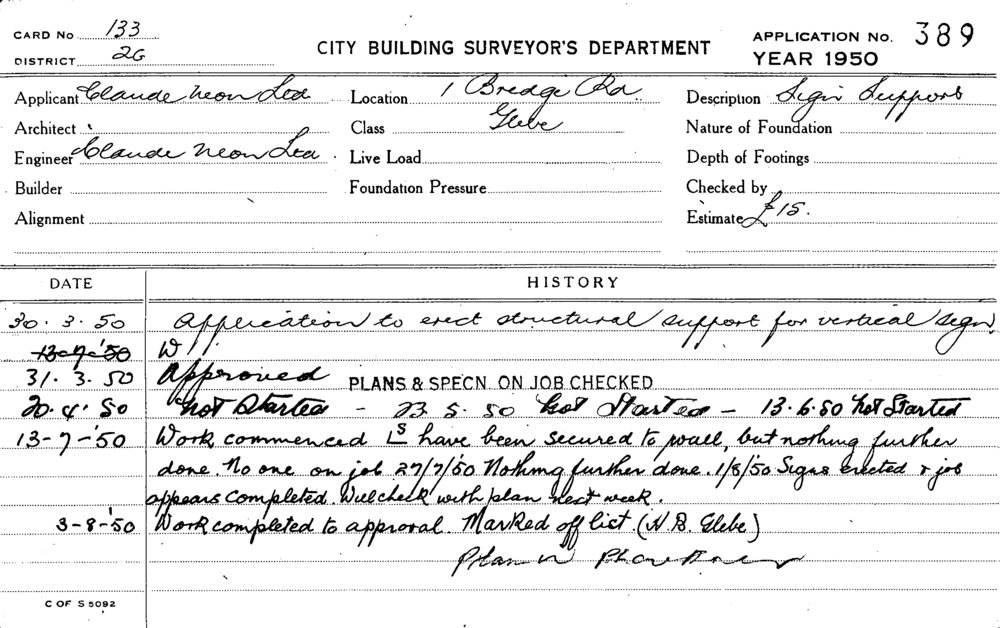 CARD No 133
DISTRICT 2G
CITY BUILDING SURVEYOR'S DEPARTMENT
APPLICATION No. 389
YEAR 1950
Applicant Claude Neon Ltd
Location 1 Bridge Rd
Description Sign Support
Architect
Class Glebe
Nature of Foundation
Engineer Claude Neon Ltd
Live Load
Depth of Footings
Builder
Foundation Pressure
Checked by
Alignment
Estimate £15.
DATE HISTORY
30.3.50 Application to erect structural support for vertical sign
13-7-'50 W
31.3.50 Approved PLANS & SPECN. ON JOB CHECKED
20.4.50 Not Started - 23.5.50 Not Started - 13.6.50 Not Started
13-7-'50 Work commenced Ls have been secured to wall, but nothing further
done. No one on job 27/7/50 Nothing further done. 1/8/50 Signs erected & job
appears completed. Will check with plan next week.
3-8-'50 Work completed to approval. Marked off list (H.B. Glebe)
Plan
C OF S 5092